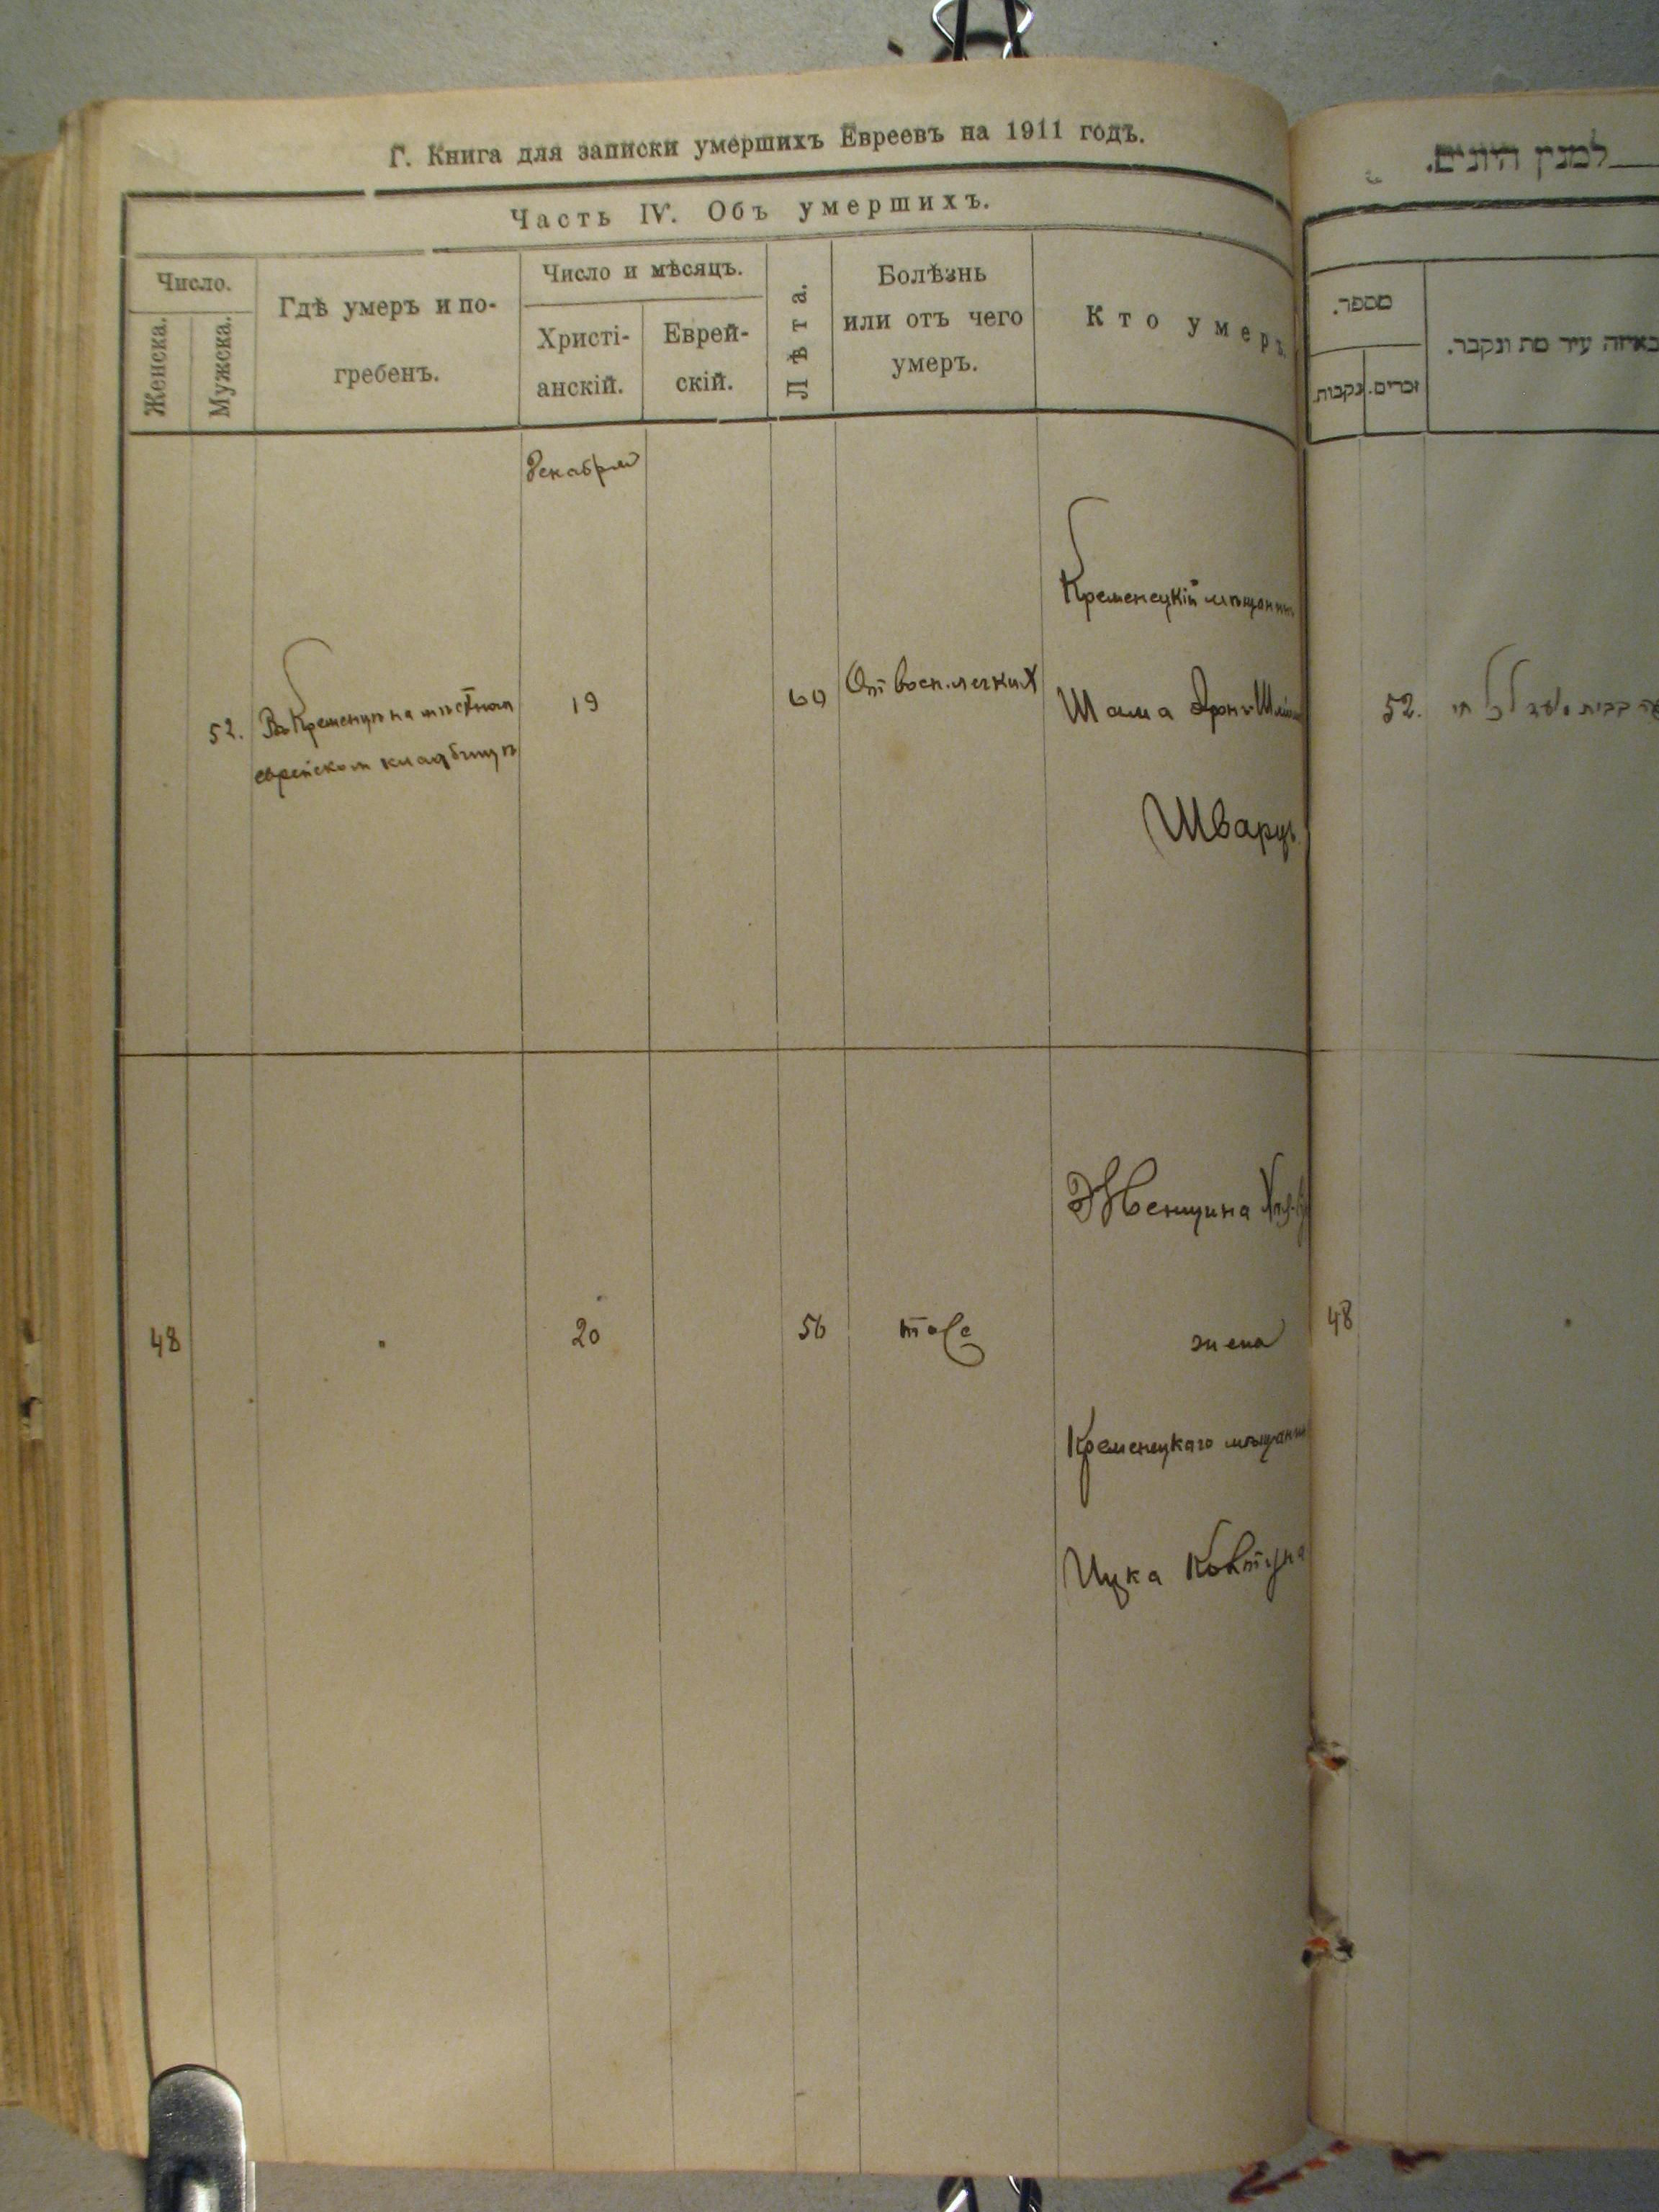 Г. Книга для записки умершихъ Евреевъ на 1911 годъ.
Часть IV. Объ умершихъ.
Число.
Женска.
Мужска.
Гдѣ умеръ и по-
гребенъ.
Число и мѣсяцъ.
Христі-
анскій.
Еврей-
скій.
Лѣта.
Болѣзнь
или отъ чего
умеръ.
Кто умеръ.
Декабря
52.
Въ Кременцѣ на мѣстном
еврейском кладбищѣ
19
60
От восп. легких
Кременецкій мѣщанинъ
Шама
Шварцъ
48
20
56
тоже
Женщина
жена
Кременецкаго мѣщанина
Ицка Ковтуна
למנין היונים.
מספר.
נקבות.
זכרים.
באיזה עיר מת ונקבר.
52.
48